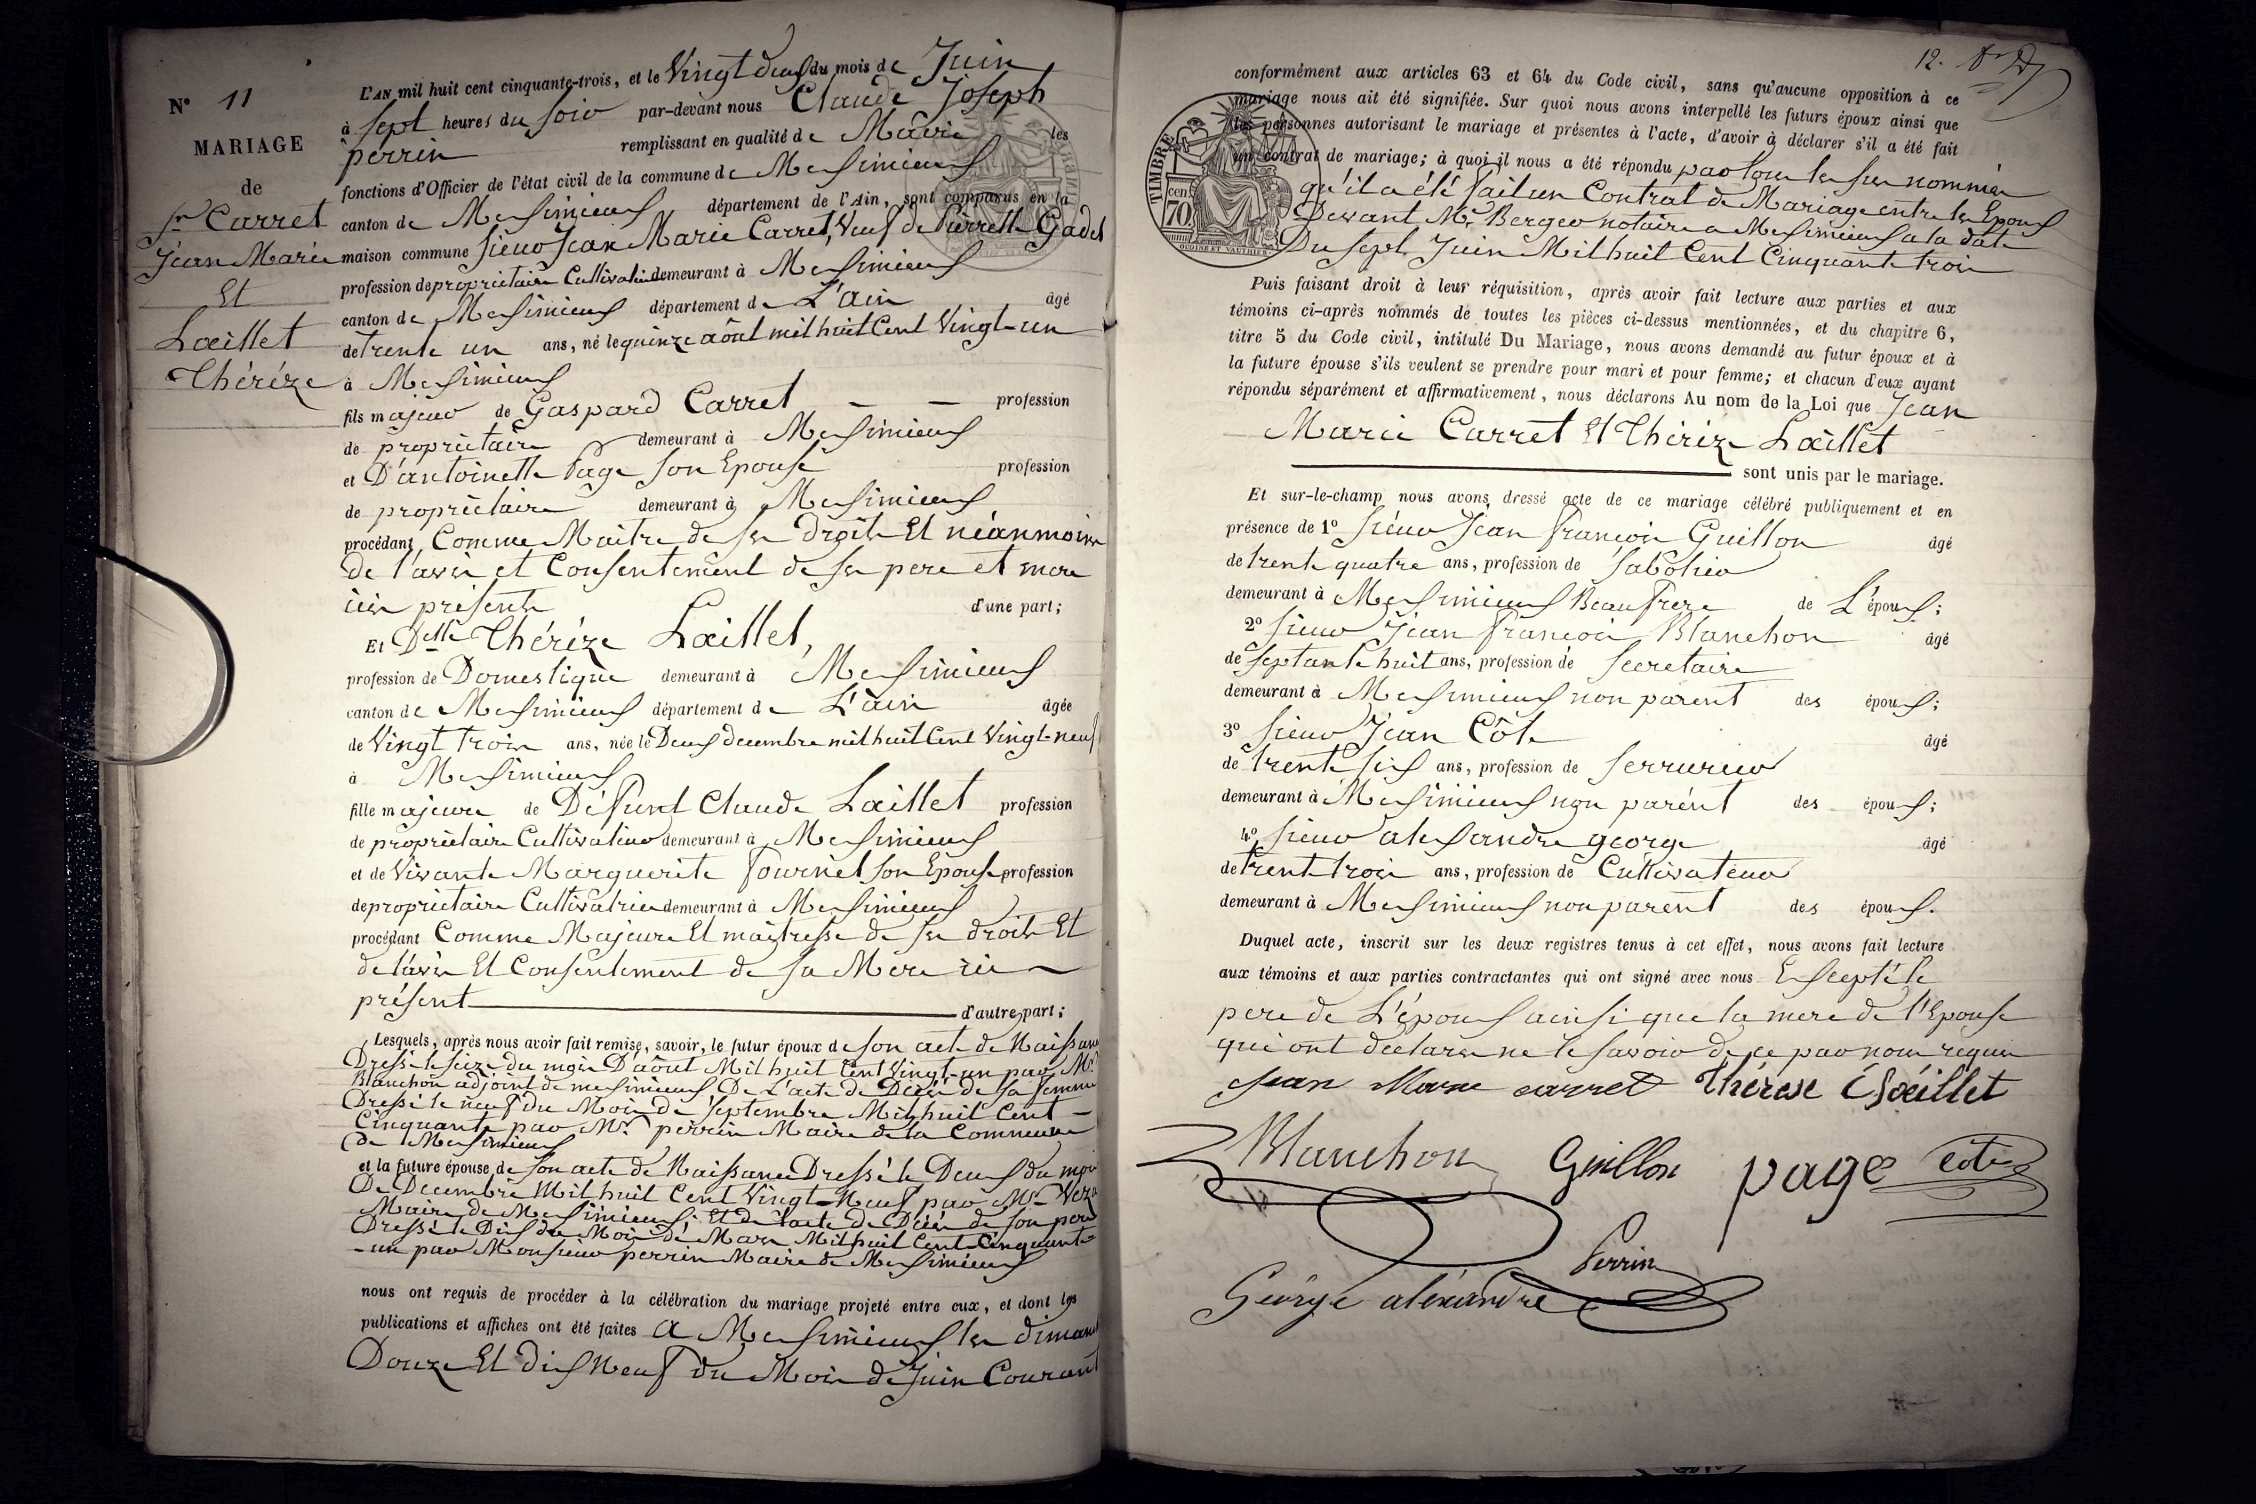 N° 11
MARIAGE
de
Sr Carret
Jean Marie
Et
Loeillet
Thérèze
L'AN mil huit cent cinquante-trois, et le Vingt deux du mois de Juin
à Sept heures du Soir par-devant nous Claude Joseph
perrin remplissant en qualité de Maire les
fonctions d'Officier de l'état civil de la commune de Meximieux
canton de Meximieux département de l'Ain, sont comparus en la
maison commune Sieur Jean Marie Carret, Veuf de Pierrette Gadet
profession de propriétaire Cultivateur demeurant à Meximieux
canton de Meximieux département de L'ain âgé
de trente un ans, né le quinze août mil huit Cent Vingt-un
à Meximieux
fils majeur de Gaspard Carret — — profession
de propriétaire demeurant à Meximieux
et D'antoinette Page son Epouse profession
de propriétaire demeurant à Meximieux
procédant Comme Maitre de ses droits Et néanmoins
de l'avis et Consentement de ses pere et mere
ici présents d'une part;
Et Delle Thérèze Loeillet,
profession de Domestique demeurant à Meximieux
canton de Meximieux département de L'ain âgée
de Vingt trois ans, née le Deux decembre mil huit Cent Vingt-neuf
à Meximieux
fille majeure de Défunt Claude Loeillet profession
de propriétaire Cultivateur demeurant à Meximieux
et de Vivante Marguerite fournet son Epouse profession
de propriétaire Cultivatrice demeurant à Meximieux
procédant Comme Majeure Et maitresse de ses droits Et
de l'avis Et Consentement de sa Mere ici
présent d'autre part;
Lesquels, après nous avoir fait remise, savoir, le futur époux de son acte de Naissance
Dressé le seize du mois D'août Mil huit Cent Vingt-un par Mr
Blanchon adjoint de meximieux De L'acte de Décès de sa femme
Dressé le neuf du Mois de Septembre Mil huit Cent —
Cinquante par Mr. perrin Maire de la Commune
de Meximieux
et la future épouse, de son acte de Naissance Dressé le Deux du mois
De Decembre Mil huit Cent Vingt-Neuf par Mr
Maire de Meximieux; Et de l'acte de Décès de son pere
Dressé le Dix du Mois de Mars Mil huit Cent Cinquante
-un par Monsieur perrin Maire de Meximieux
nous ont requis de procéder à la célébration du mariage projeté entre eux, et dont les
publications et affiches ont été faites a Meximieux les dimanches
Douze Et dix Neuf du Mois de Juin Courant
12.
TIMBRE
70 cen
conformément aux articles 63 et 64 du Code civil, sans qu'aucune opposition à ce
mariage nous ait été signifiée. Sur quoi nous avons interpellé les futurs époux ainsi que
les personnes autorisant le mariage et présentes à l'acte, d'avoir à déclarer s'il a été fait
un contrat de mariage; à quoi il nous a été répondu par tous les sus nommés
qu'il a été fait un Contrat de Mariage entre les Epoux
Devant Mr. Berger notaire a Meximieux a la date
Du Sept Juin Mil huit Cent Cinquante trois
Puis faisant droit à leur réquisition, après avoir fait lecture aux parties et aux
témoins ci-après nommés de toutes les pièces ci-dessus mentionnées, et du chapitre 6,
titre 5 du Code civil, intitulé Du Mariage, nous avons demandé au futur époux et à
la future épouse s'ils veulent se prendre pour mari et pour femme; et chacun d'eux ayant
répondu séparément et affirmativement, nous déclarons Au nom de la Loi que Jean
Marie Carret Et Thérèze Loeillet
sont unis par le mariage.
Et sur-le-champ nous avons dressé acte de ce mariage célébré publiquement et en
présence de 1° Sieur Jean françois Guillon âgé
de trente quatre ans, profession de Sabotier
demeurant à Meximieux Beau frere de L'époux;
2° Sieur Jean françois Blanchon âgé
de septante huit ans, profession de Secretaire
demeurant à Meximieux non parent des époux;
3° Sieur Jean Côte âgé
de trente six ans, profession de Serrurier
demeurant à Meximieux non parent des époux;
4° Sieur alexandre george âgé
de trente trois ans, profession de Cultivateur
demeurant à Meximieux non parent des époux.
Duquel acte, inscrit sur les deux registres tenus à cet effet, nous avons fait lecture
aux témoins et aux parties contractantes qui ont signé avec nous Excepté le
pere de L'époux ainsi que la mere de l'Epouse
qui ont déclarer ne le savoir de ce par nous requis
Jean Marie carret Thérese Loeillet
Blanchon Guillon page cote
Perrin
George aléxandre